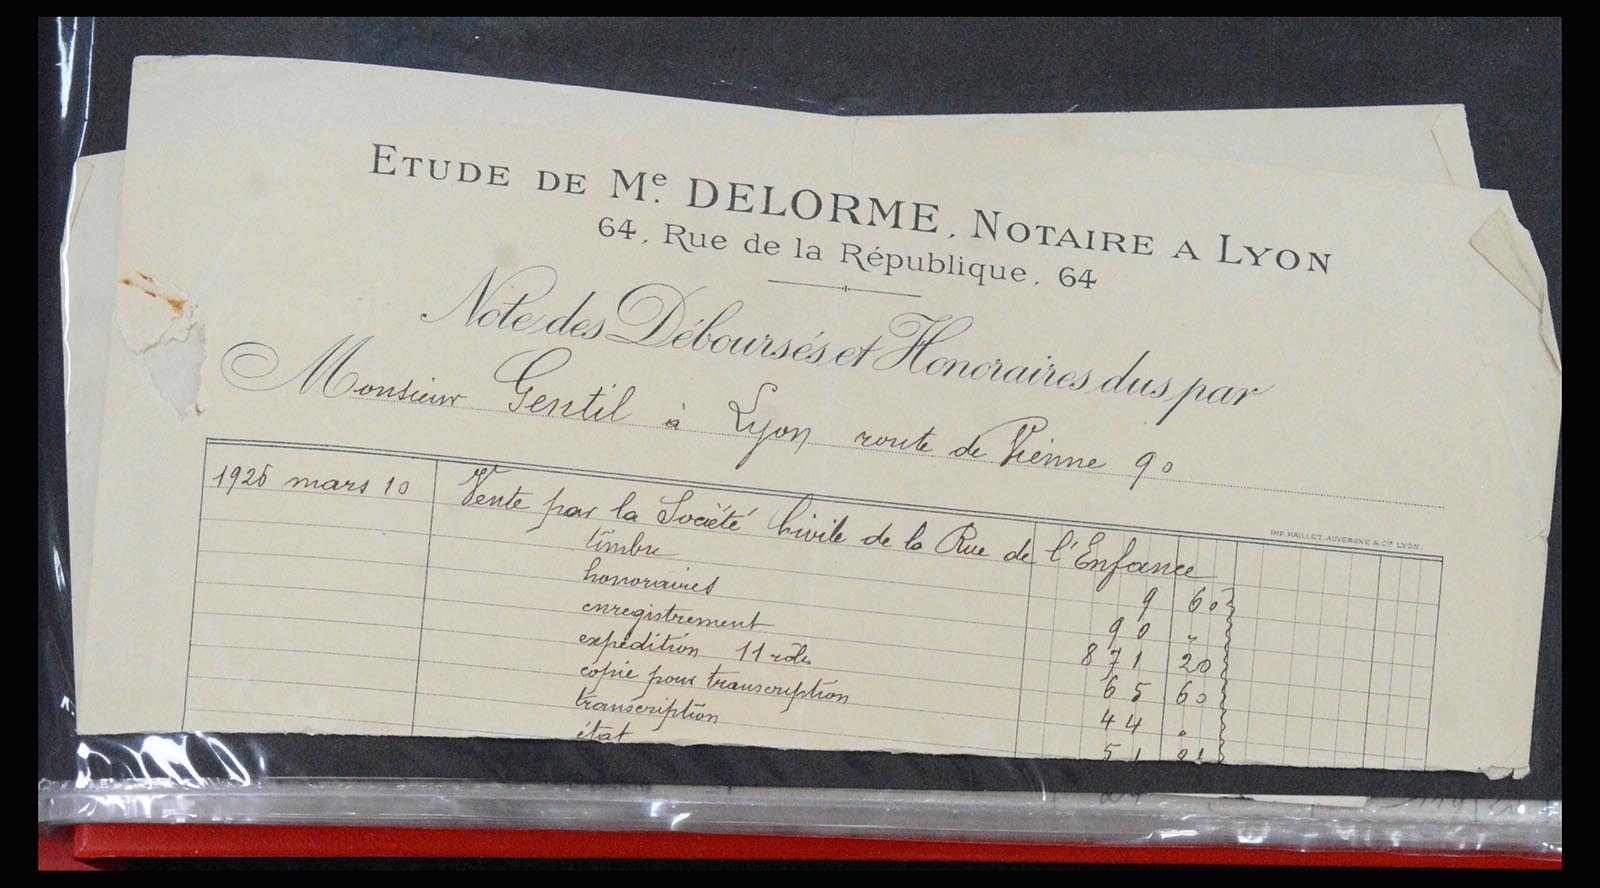 ETUDE DE Me. DELORME, NOTAIRE A LYON
64, Rue de la République, 64
Note des Déboursés et Honoraires dus par
Monsieur Gentil à Lyon route de Vienne 90
IMP. MAILLET, AUVERGNE & Cie LYON.
1926 mars 10 Vente par la Société Civile de la Rue de l'Enfance
timbre 9 60
honoraires 90 "
enregistrement 871 20
expédition 11 rôles 65 60
copie pour transcription 44 "
transcription 51
état